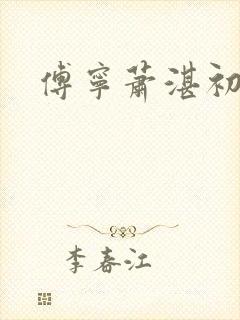 傅寧蕭湛初
李春江